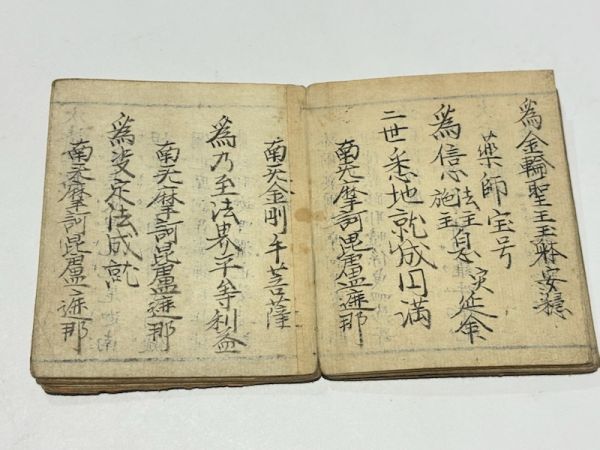 為金輪聖王玉躰安穏
薬師宝号
為信心法主施主息災延命
二世悉地就成円満
南无摩訶毘盧遮那
南无金剛手菩薩
為乃至法界平等利益
南无摩訶毘盧遮那
為决定法成就
南无摩訶毘盧遮那